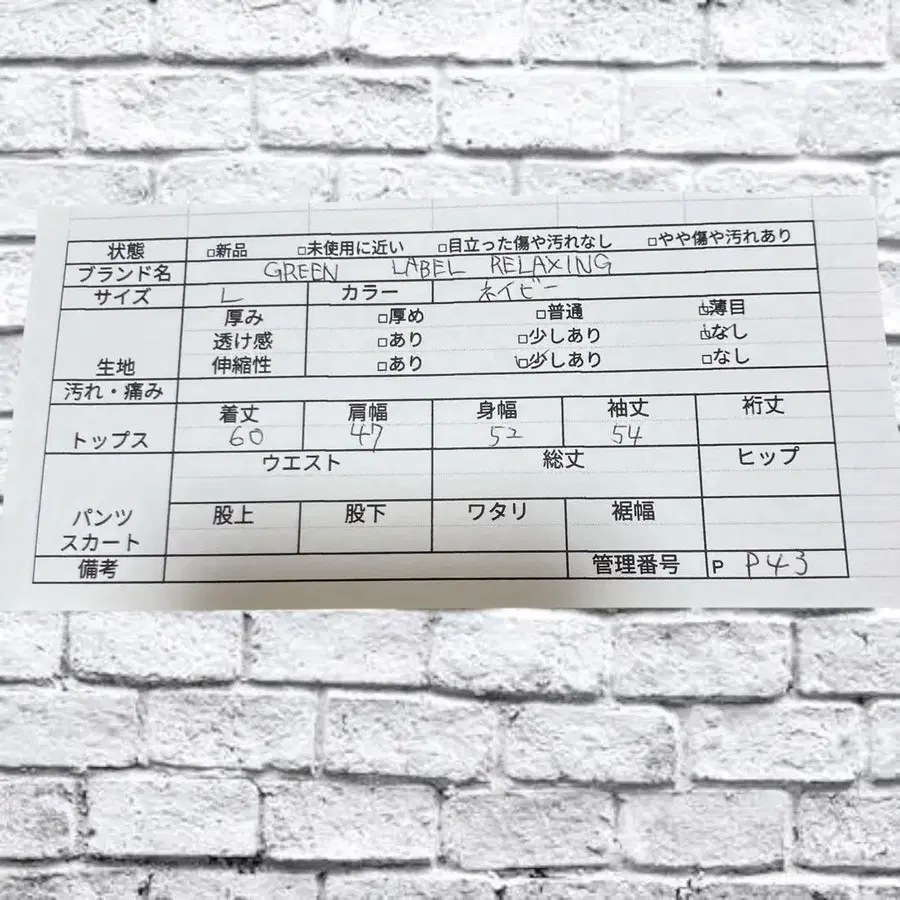 状態 □新品 □未使用に近い □目立った傷や汚れなし □やや傷や汚れあり
ブランド名 GREEN LABEL RELAXING
サイズ L カラー ネイビー
厚み □厚め □普通 □薄目
透け感 □あり □少しあり □なし
生地 伸縮性 □あり □少しあり □なし
汚れ・痛み
着丈 肩幅 身幅 袖丈 裄丈
トップス 60 47 52 54
ウエスト 総丈 ヒップ
パンツ 股上 股下 ワタリ 裾幅
スカート
備考 管理番号 P P43